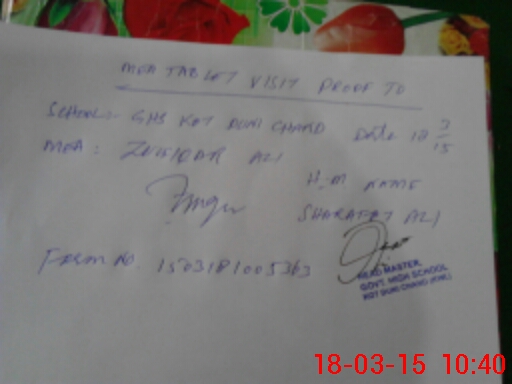 MEA TABLET VISIT PROOF TO
SCHOOL:- GHS KOT DUNI CHAND Date 18 3/15
MEA: ZULFIQAR ALI
H-M NAME
SHARAFAT ALI
Form No. 1503181005363
HEAD MASTER
GOVT. HIGH SCHOOL
KOT DUNI CHAND
18-03-15 10:40